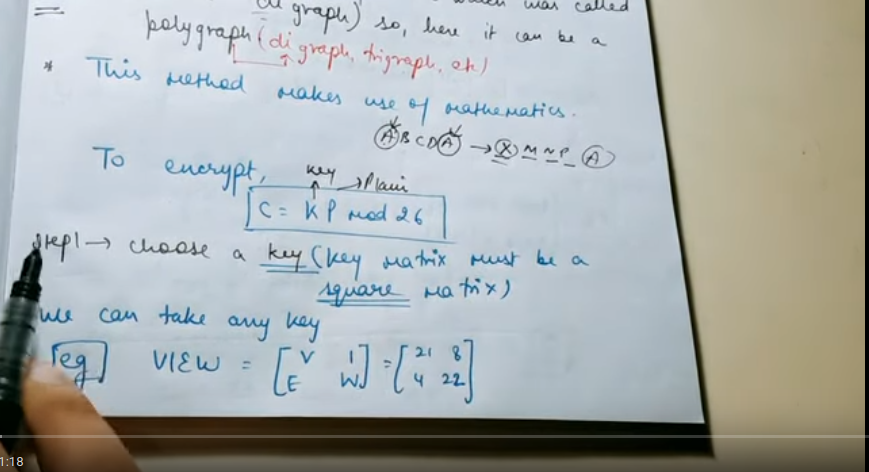 which was called
di graph) so, here it can be a
polygraph (di graph, trigraph, etc)
* This method makes use of mathematics.
ABCDA → XMNPA
To encrypt,
key
→ Plain
C = KP mod 26
Step1 → choose a key (key matrix must be a
square matrix)
We can take any key
eg] VIEW = [V I = [21 8
E W] 4 22]
1:18